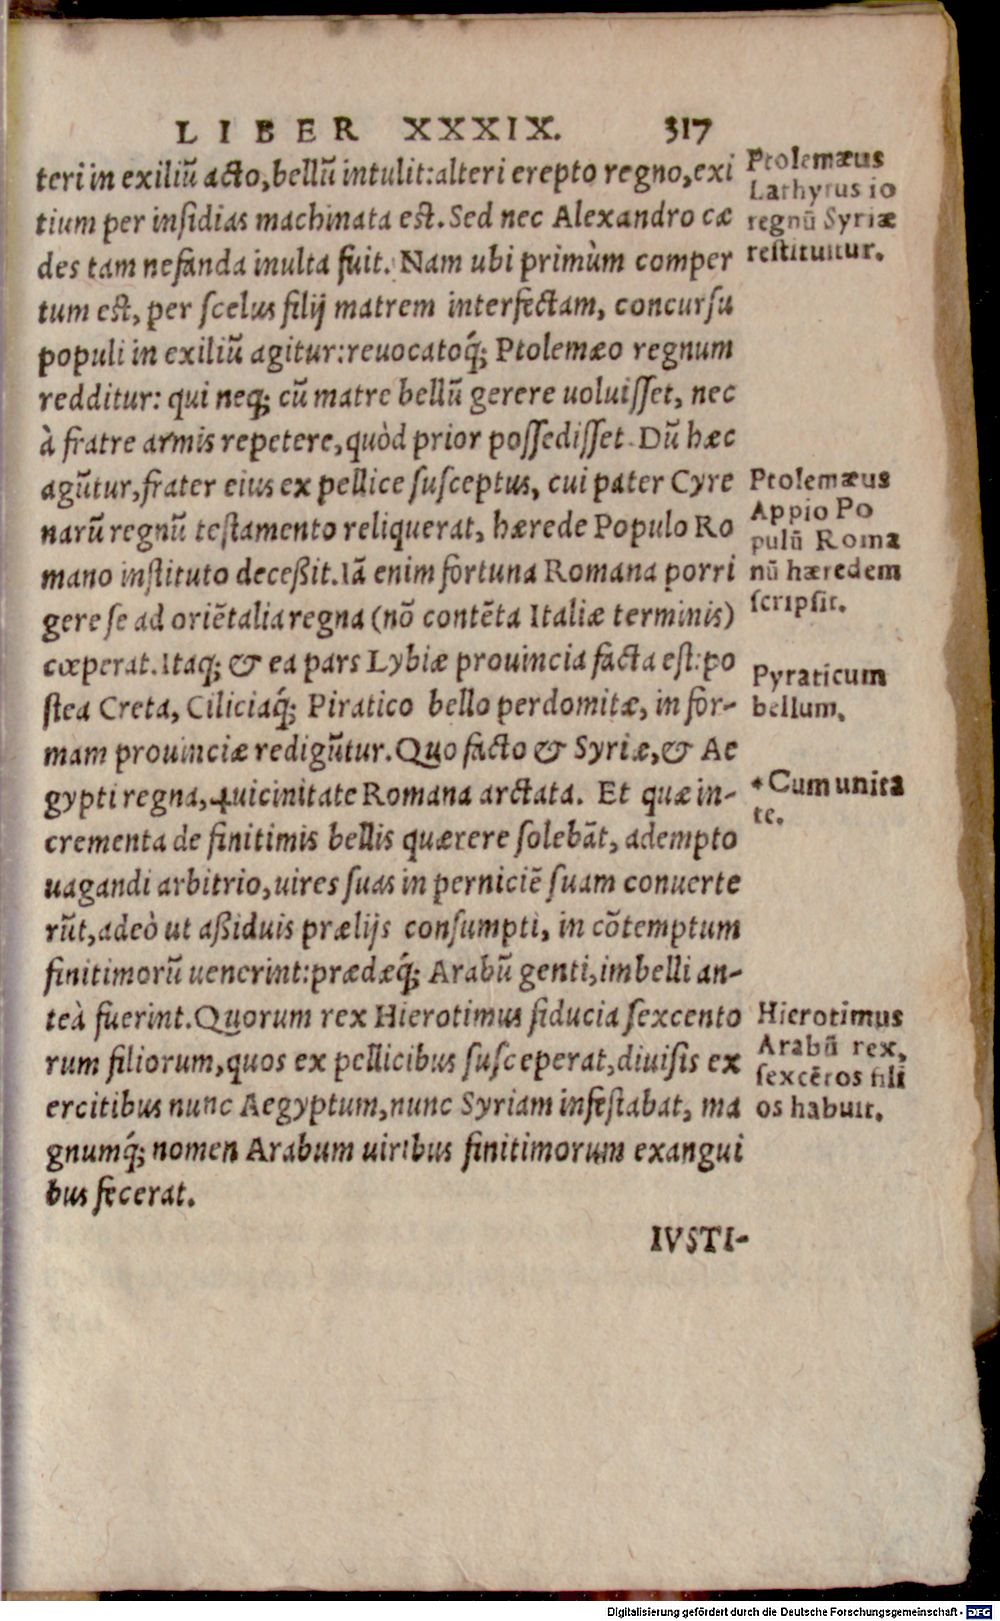 LIBER XXXIX. 317
teri in exiliũ acto, bellũ intulit: alteri erepto regno, exi
tium per insidias machinata est. Sed nec Alexandro cæ
des tam nefanda inulta fuit. Nam ubi primùm comper
tum est, per scelus filij matrem interfectam, concursu
populi in exiliũ agitur: reuocatoq́; Ptolemæo regnum
redditur: qui neq; cũ matre bellũ gerere uoluisset, nec
à fratre armis repetere, quòd prior possedisset. Dũ hæc
agũtur, frater eius ex pellice susceptus, cui pater Cyre
narũ regnũ testamento reliquerat, hærede Populo Ro
mano instituto deceßit. Iã enim fortuna Romana porri
gere se ad oriẽtalia regna (nõ contẽta Italiæ terminis)
cœperat. Itaq; & ea pars Lybiæ prouincia facta est: po
stea Creta, Ciliciaq́; Piratico bello perdomitæ, in for-
mam prouinciæ redigũtur. Quo facto & Syriæ, & Ae
gypti regna, ✢uicinitate Romana arctata. Et quæ in-
crementa de finitimis bellis quærere solebãt, adempto
uagandi arbitrio, uires suas in perniciẽ suam conuerte
rũt, adeò ut aßiduis prælijs consumpti, in cõtemptum
finitimorũ uenerint: prædæq́; Arabũ genti, imbelli an-
teà fuerint. Quorum rex Hierotimus fiducia sexcento
rum filiorum, quos ex pellicibus susceperat, diuisis ex
ercitibus nunc Aegyptum, nunc Syriam infestabat, ma
gnumq́; nomen Arabum uiribus finitimorum exangui
bus fecerat.
IVSTI-
Ptolemæus
Lathyrus io
regnũ Syriæ
restituitur.
Ptolemæus
Appio Po
pulũ Roma
nũ hæredem
scripsit.
Pyraticum
bellum.
*Cum unita
te.
Hierotimus
Arabũ rex,
sexcẽtos fili
os habuit.
Digitalisierung gefördert durch die Deutsche Forschungsgemeinschaft - DFG